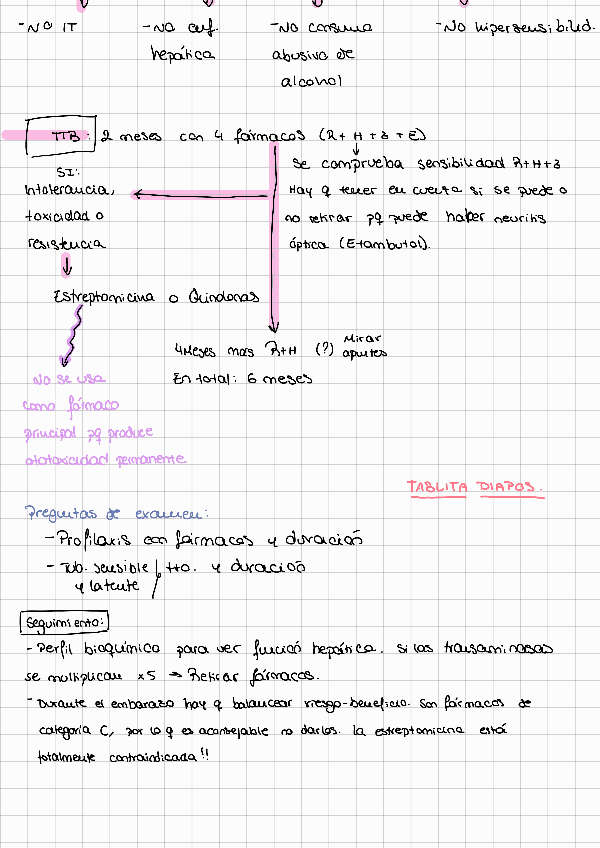 -NO IT
-No enf. hepática
-No consumo abusivo de alcohol
-No hipersensibilid.
TTB: 2 meses con 4 fármacos (R+H+Z+E)
Se comprueba sensibilidad R+H+Z
Hay q tener en cuenta si se puede o
no retirar pq puede haber neuritis
óptica (Etambutol).
SI:
Intolerancia,
toxicidad o
resistencia
Estreptomicina o Quinolonas
No se usa
como fármaco
principal pq produce
ototoxicidad permanente
4 Meses más R+H (?) Mirar apuntes
En total: 6 meses
TABLITA DIAPOS.
Preguntas de examen:
- Profilaxis con fármacos y duración
- Tub. sensible y latente / tto. y duración
Seguimiento:
- Perfil bioquímico para ver función hepática. Si las transaminasas
se multiplican x5 → Retirar fármacos.
- Durante el embarazo hay q balancear riesgo-beneficio. Son fármacos de
categoría C, por lo q es aconsejable no darlos. La estreptomicina está
totalmente contraindicada!!